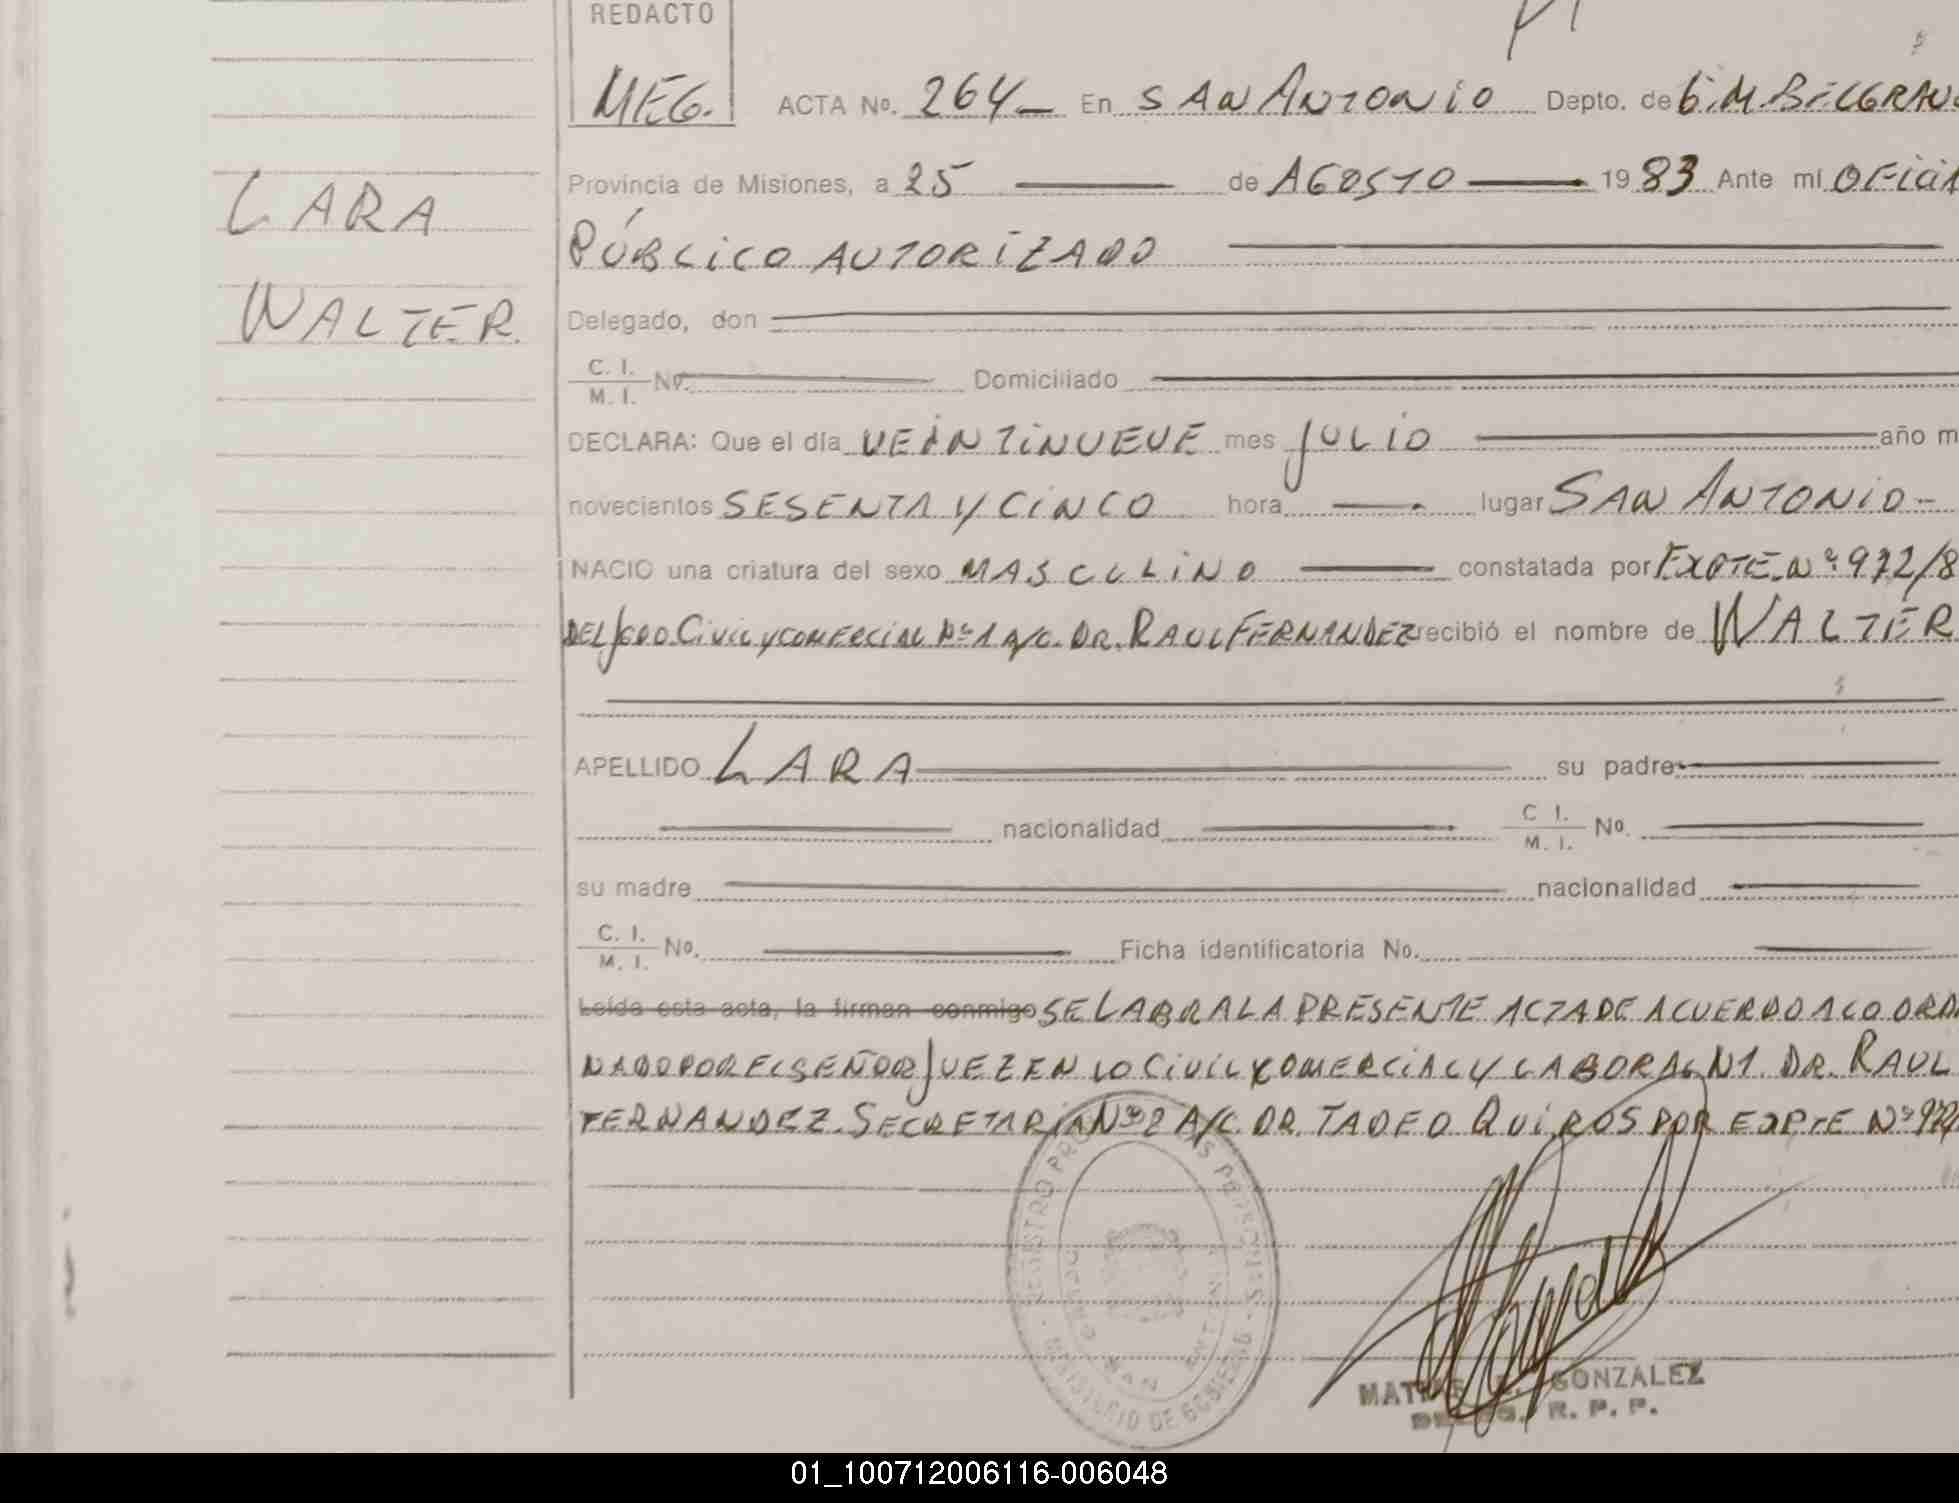 REDACTO
MEG. ACTA No. 264 En SAN ANTONIO Depto. de G.M. BELGRANO
Provincia de Misiones, a 25 de AGOSTO 1983 Ante mí OFICIA
LARA
PÚBLICO AUTORIZADO
WALTER.
Delegado, don
C. I.
M. I. No. Domiciliado
DECLARA: Que el día VEINTINUEVE mes JULIO año m
novecientos SESENTA Y CINCO hora lugar SAN ANTONIO
NACIO una criatura del sexo MASCULINO constatada por EXPTE. Nº 972/8
DEL JGDO CIVIL Y COMERCIAL Nº 1 A/C. DR. RAUL FERNANDEZ recibió el nombre de WALTER
APELLIDO LARA su padre
nacionalidad C I. M. I. No.
su madre nacionalidad
C. I. M. I. No. Ficha identificatoria No.
Leída esta acta, la firman conmigo SE LABRA LA PRESENTE ACTA DE ACUERDO A LO ORDE
NADO POR EL SEÑOR JUEZ EN LO CIVIL Y COMERCIAL Y LABORAL N1. DR. RAUL
FERNANDEZ. SECRETARIA Nº 2 A/C. DR. TADEO QUIROS POR EXPTE Nº 972
REGISTRO PROVINCIAL DE LAS PERSONAS
MINISTERIO DE GOBIERNO
SAN ANTONIO
GONZALEZ
R. P. P.
01_100712006116-006048